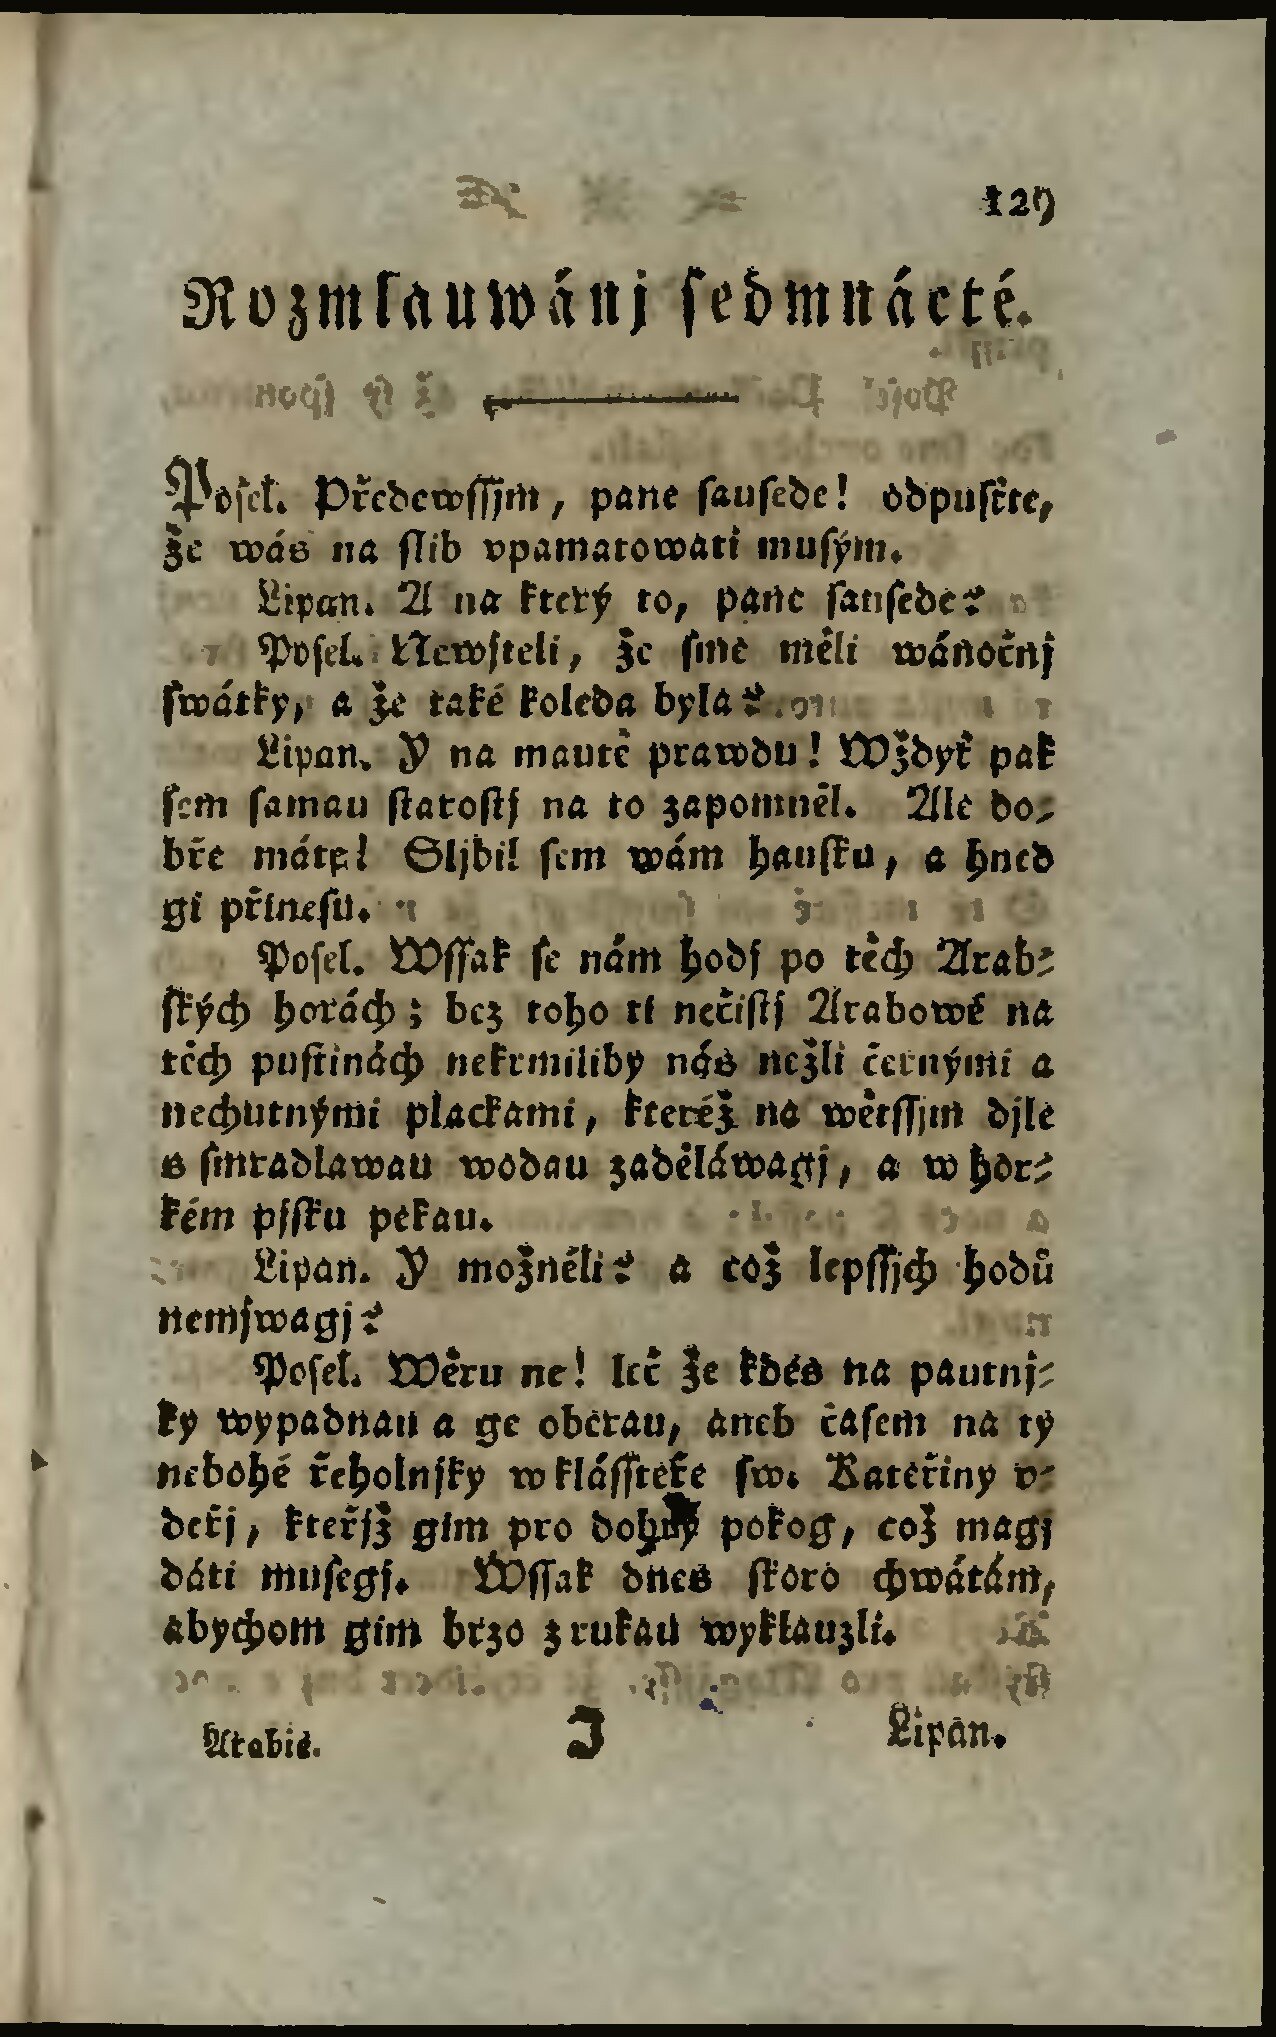 129
Rozmlauwánj sedmnácté.
Posel. Předewssjm, pane sausede! odpusťte,
že wás na slib vpamatowati musým.
Lipan. A na který to, pane sausede?
Posel. Newjteli, že sme měli wánočnj
swátky, a že také koleda byla?
Lipan. Y na mautě prawdu! Wždyť pak
sem samau starostj na to zapomněl. Ale do-
bře máte! Sljbil sem wám hausku, a hned
gi přinesu.
Posel. Wssak se nám hodj po těch Arab-
ských horách; bez toho ti nečistj Arabowé na
těch pustinách nekrmiliby nás nežli černými a
nechutnými plackami, kteréž na wětssjm djle
s smradlawau wodau zaděláwagj, a w hor-
kém pjsku pekau.
Lipan. Y možnéli? a což lepssjch hodů
nemjwagj?
Posel. Wěru ne! leč že kdes na pautnj-
ky wypadnau a ge oberau, aneb časem na ty
nebohé řeholnjky w klássteře sw. Kateřiny v-
deřj, kteřjž gim pro dobrý pokog, což magj
dáti musegj. Wssak dnes skoro chwátám,
abychom gim brzo z rukau wyklauzli.
Arabie. J Lipan.